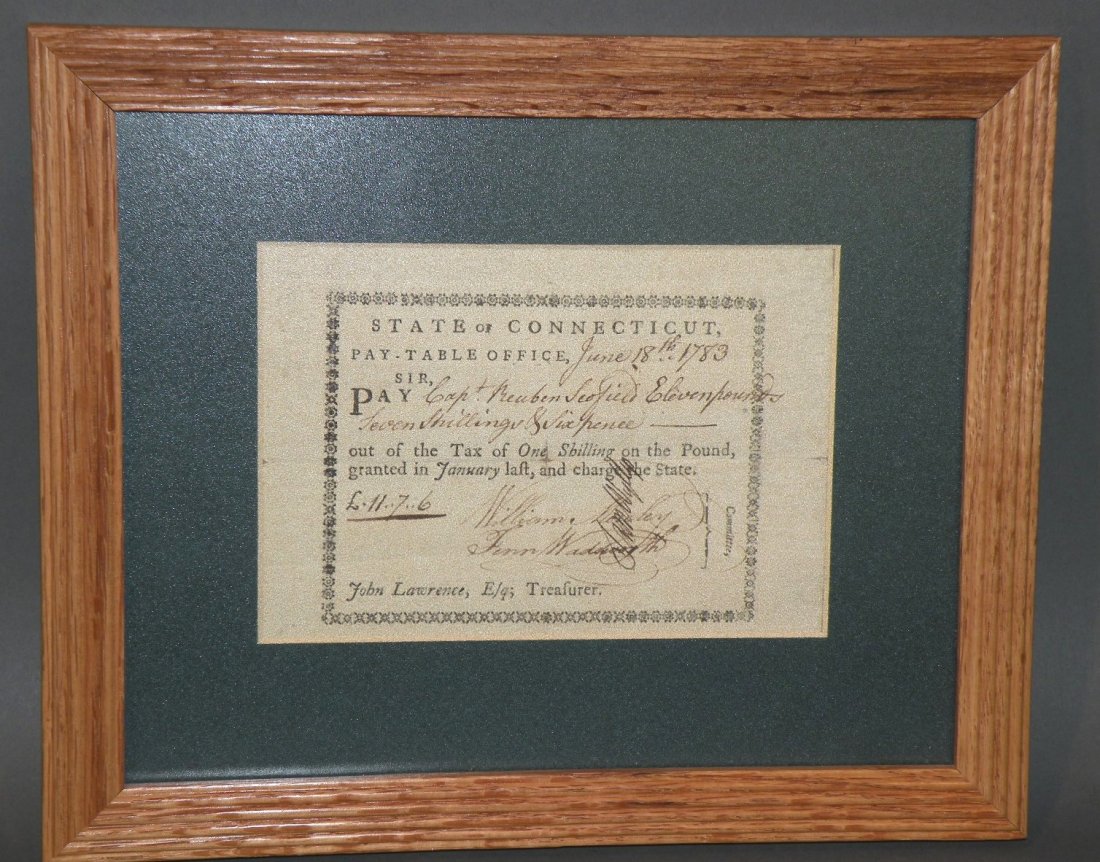 STATE OF CONNECTICUT,
PAY-TABLE OFFICE, June 18th. 1783
SIR,
PAY Capt. Reuben Scofield Elevenpounds
Seven Shillings & Sixpence
out of the Tax of One Shilling on the Pound,
granted in January laſt, and charge the State.
£. 11..7..6
William
Fenn Wadsworth
Committee,
John Lawrence, Eſq; Treaſurer.